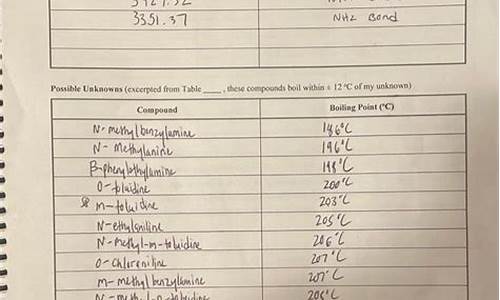 3351.37 NH2 Bond
Possible Unknowns (excerpted from Table ____, these compounds boil within ± 12 °C of my unknown)
Compound Boiling Point (°C)
N-methylbenzylamine 186°C
N-Methylaniline 196°C
B-phenylethylamine 198°C
O-toluidine 200°C
m-toluidine 203°C
N-ethylaniline 205°C
N-methyl-m-toluidine 206°C
O-chloroniline 207°C
m-methylbenzylamine 207°C